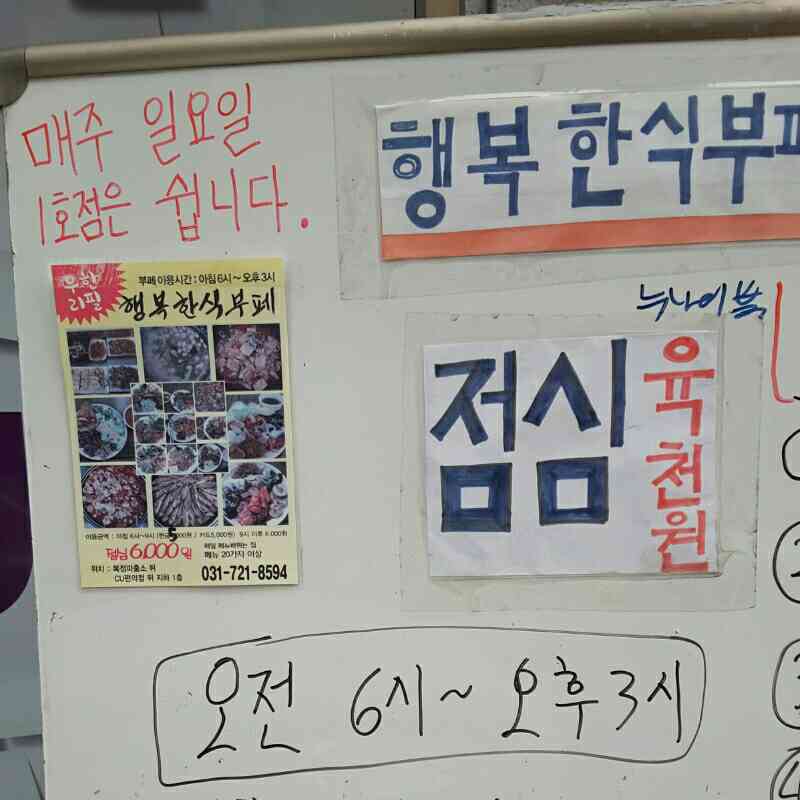 매주 일요일
1호점은 쉽니다.
행복 한식부페
무한
리필
부페 이용시간 : 아침 6시~오후 3시
행복한식부페
점심
육천원
이용금액 : 아침 6시~9시
9시 이후 6,000원
점심 6,000원
매일 메뉴바뀌는 집
메뉴 20가지 이상
위치 : 복정파출소 뒤
CU편의점 뒤 지하 1층
031-721-8594
오전 6시~오후 3시